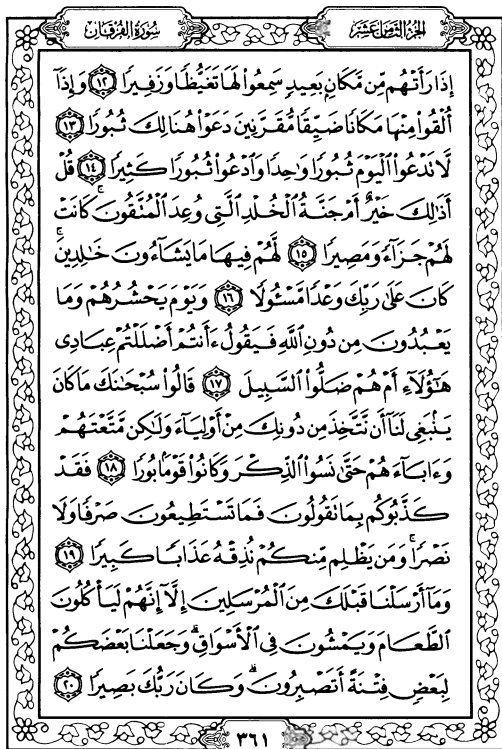 سُورَةُ الفُرقَانِ
الجُزءُ الثَّامِنَ عَشَرَ
إِذَا رَأَتْهُم مِّن مَّكَانٍ بَعِيدٍ سَمِعُوا۟ لَهَا تَغَيُّظًا وَزَفِيرًا ١٢ وَإِذَآ
أُلْقُوا۟ مِنْهَا مَكَانًا ضَيِّقًا مُّقَرَّنِينَ دَعَوْا۟ هُنَالِكَ ثُبُورًا ١٣
لَّا تَدْعُوا۟ ٱلْيَوْمَ ثُبُورًا وَٰحِدًا وَٱدْعُوا۟ ثُبُورًا كَثِيرًا ١٤ قُلْ
أَذَٰلِكَ خَيْرٌ أَمْ جَنَّةُ ٱلْخُلْدِ ٱلَّتِى وُعِدَ ٱلْمُتَّقُونَ ۚ كَانَتْ
لَهُمْ جَزَآءً وَمَصِيرًا ١٥ لَّهُمْ فِيهَا مَا يَشَآءُونَ خَٰلِدِينَ ۚ
كَانَ عَلَىٰ رَبِّكَ وَعْدًا مَّسْـُٔولًا ١٦ وَيَوْمَ يَحْشُرُهُمْ وَمَا
يَعْبُدُونَ مِن دُونِ ٱللَّهِ فَيَقُولُ ءَأَنتُمْ أَضْلَلْتُمْ عِبَادِى
هَٰٓؤُلَآءِ أَمْ هُمْ ضَلُّوا۟ ٱلسَّبِيلَ ١٧ قَالُوا۟ سُبْحَٰنَكَ مَا كَانَ
يَنۢبَغِى لَنَآ أَن نَّتَّخِذَ مِن دُونِكَ مِنْ أَوْلِيَآءَ وَلَٰكِن مَّتَّعْتَهُمْ
وَءَابَآءَهُمْ حَتَّىٰ نَسُوا۟ ٱلذِّكْرَ وَكَانُوا۟ قَوْمًۢا بُورًا ١٨ فَقَدْ
كَذَّبُوكُم بِمَا تَقُولُونَ فَمَا تَسْتَطِيعُونَ صَرْفًا وَلَا
نَصْرًا ۚ وَمَن يَظْلِم مِّنكُمْ نُذِقْهُ عَذَابًا كَبِيرًا ١٩
وَمَآ أَرْسَلْنَا قَبْلَكَ مِنَ ٱلْمُرْسَلِينَ إِلَّآ إِنَّهُمْ لَيَأْكُلُونَ
ٱلطَّعَامَ وَيَمْشُونَ فِى ٱلْأَسْوَاقِ ۗ وَجَعَلْنَا بَعْضَكُمْ
لِبَعْضٍ فِتْنَةً أَتَصْبِرُونَ ۗ وَكَانَ رَبُّكَ بَصِيرًا ٢٠
٣٦١